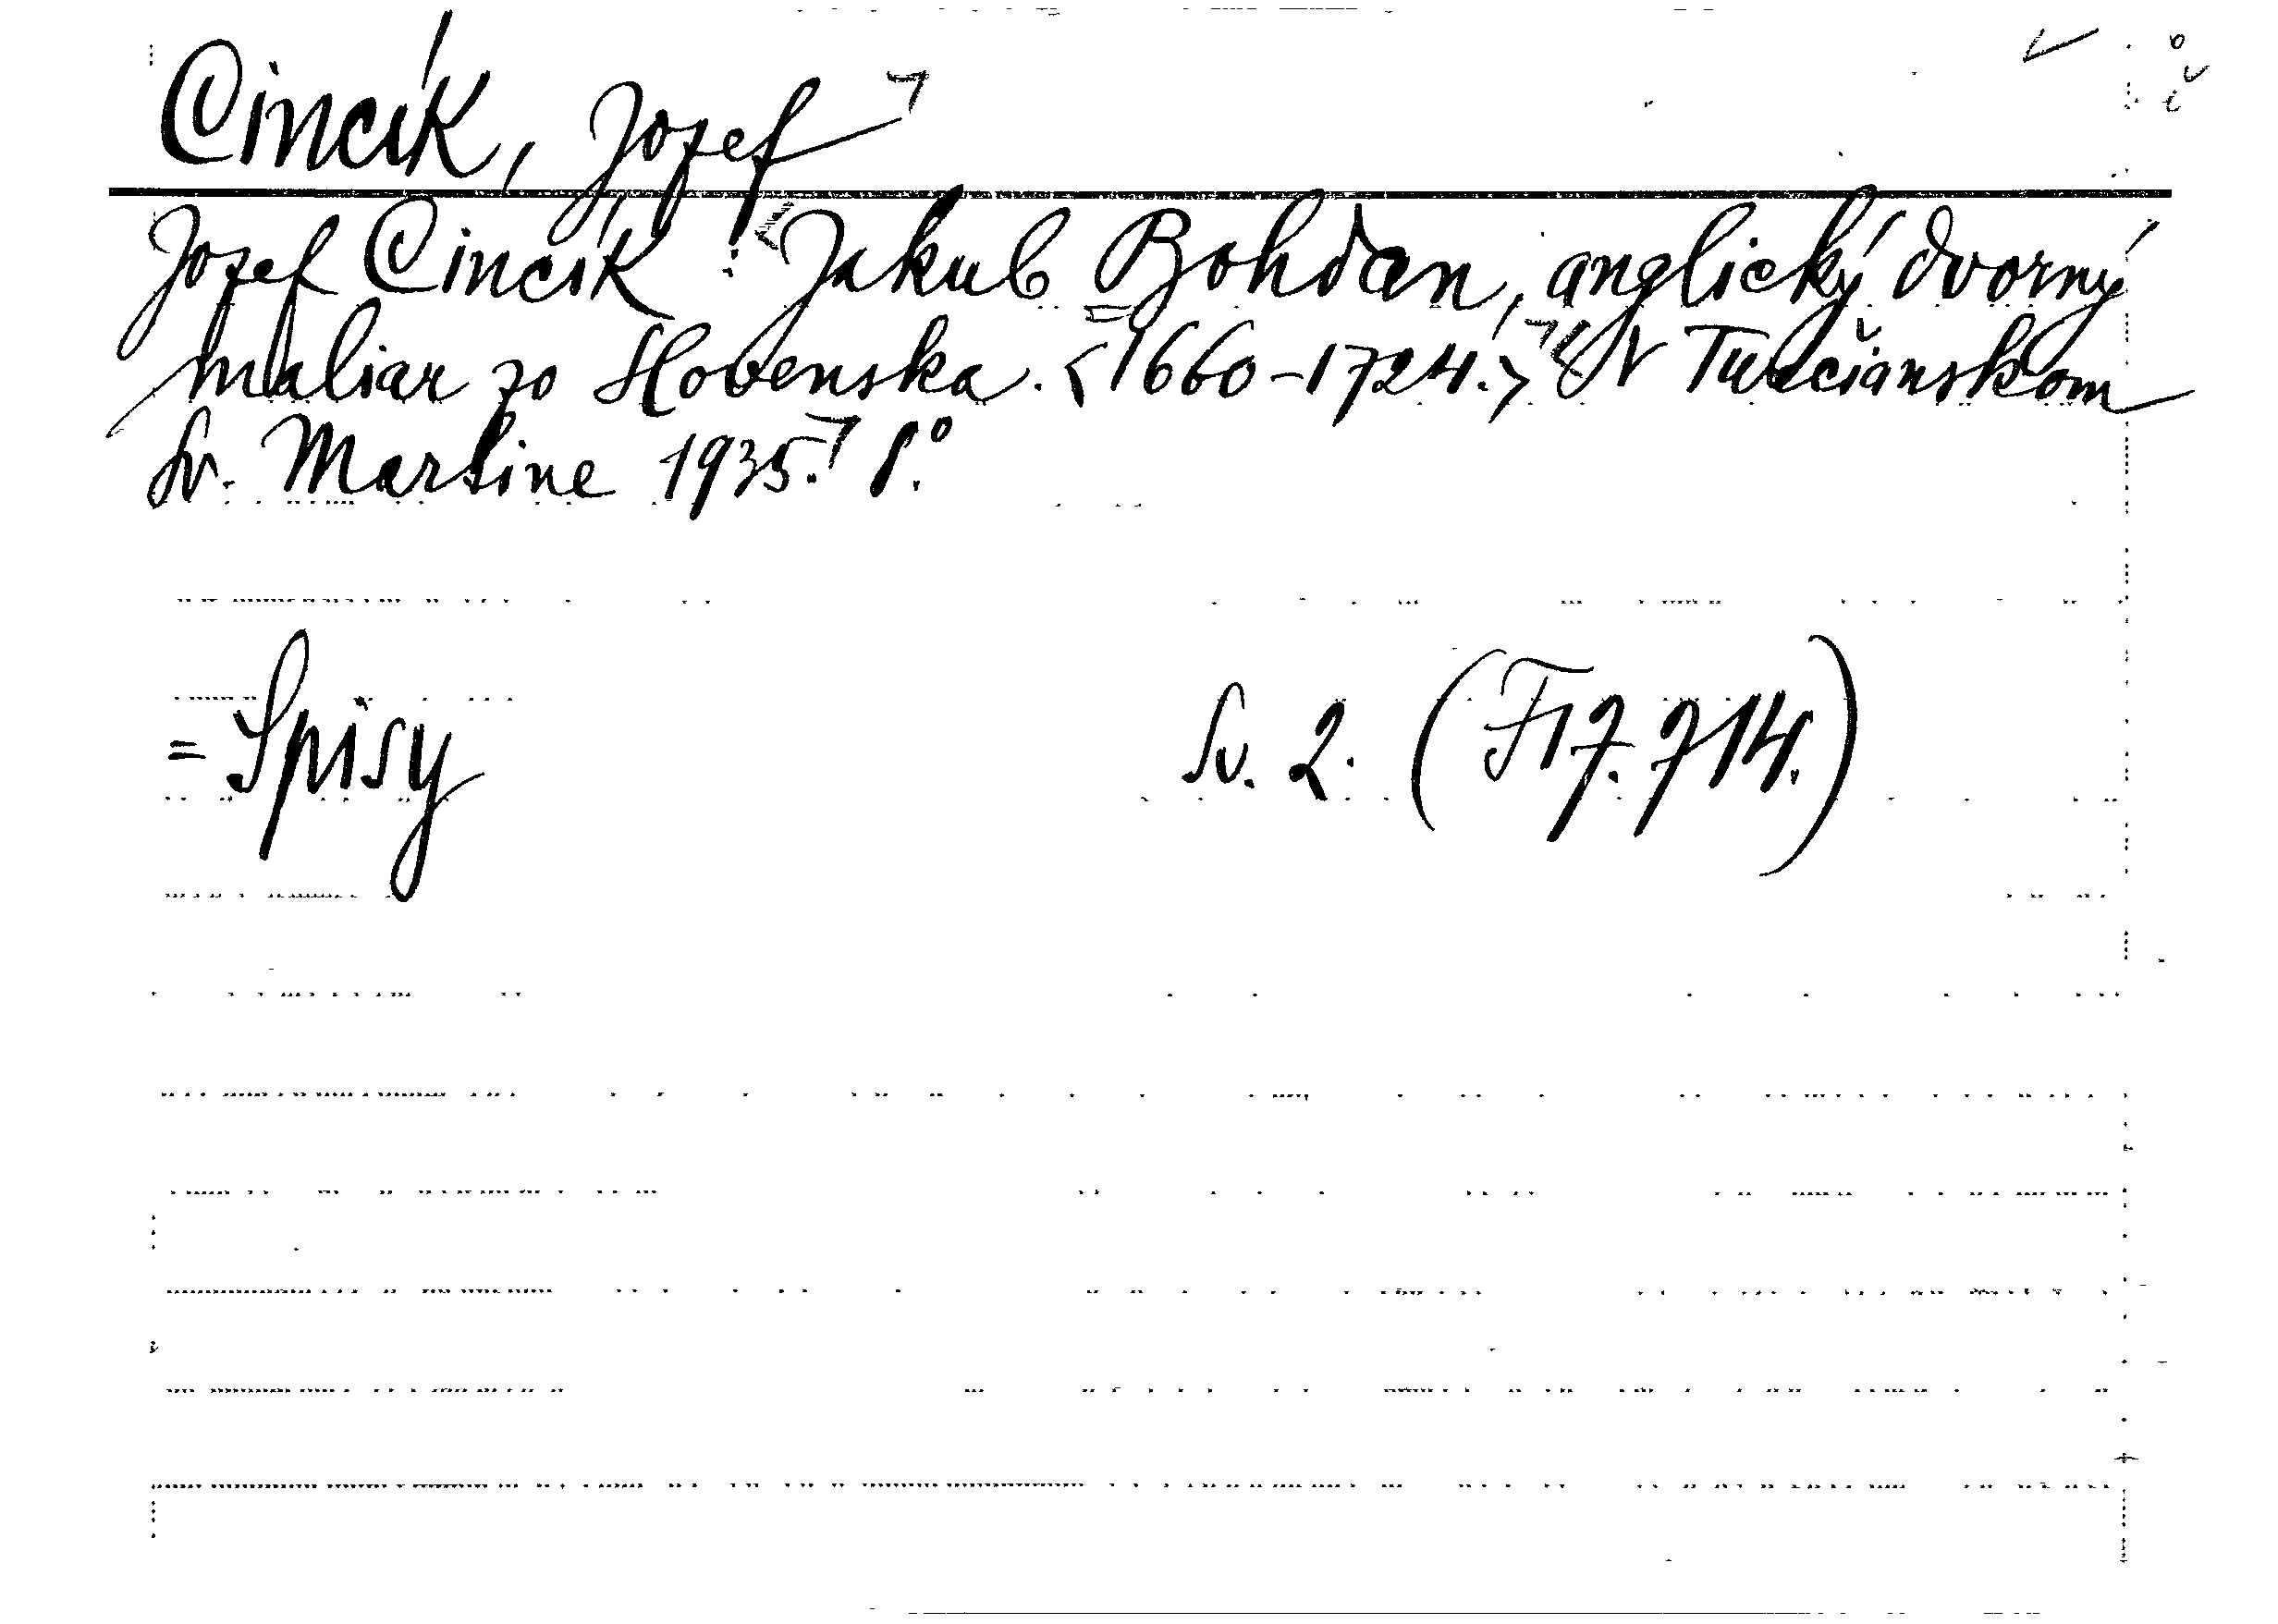 Cincík, Jozef
Jozef Cincík: Jakub Bohdan, anglický dvorný
maliar zo Slovenska. <1660-1724.> V Turčianskom
Sv. Martine 1935. 8°.
= Spisy Sv. 2. (F 17.714.)